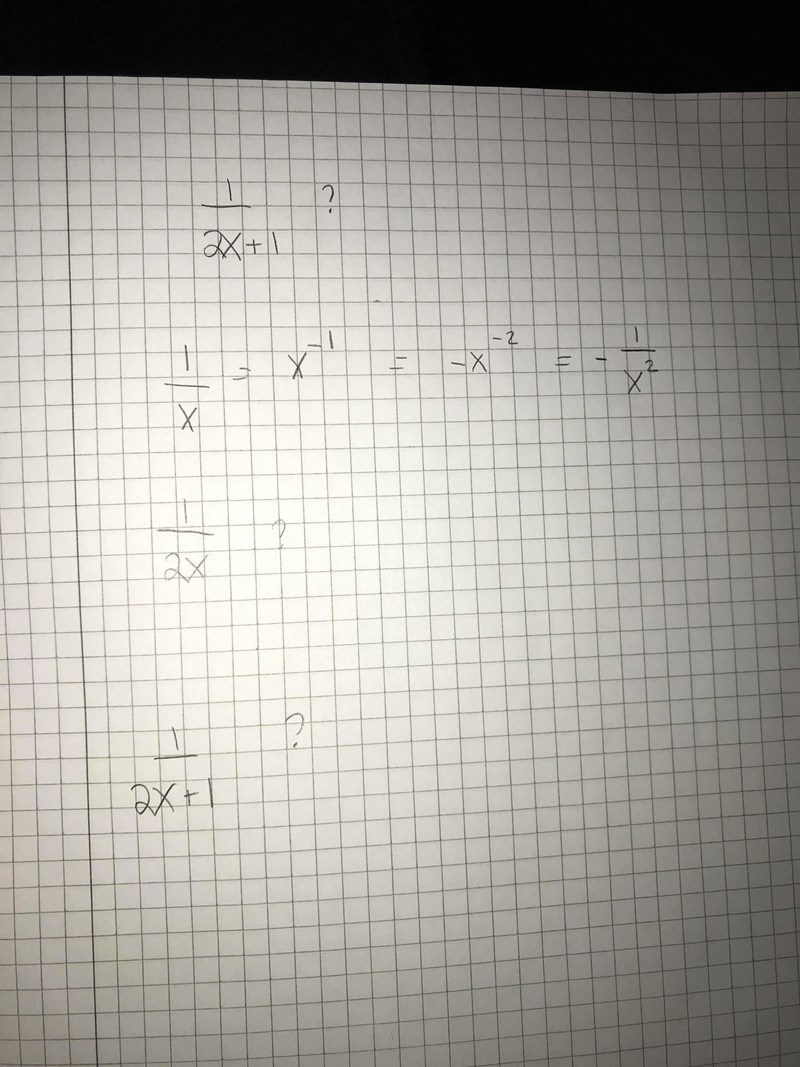 1/2x+1 ?
1/x = x^-1 = -x^-2 = - 1/x^2
1/2x ?
1/2x+1 ?